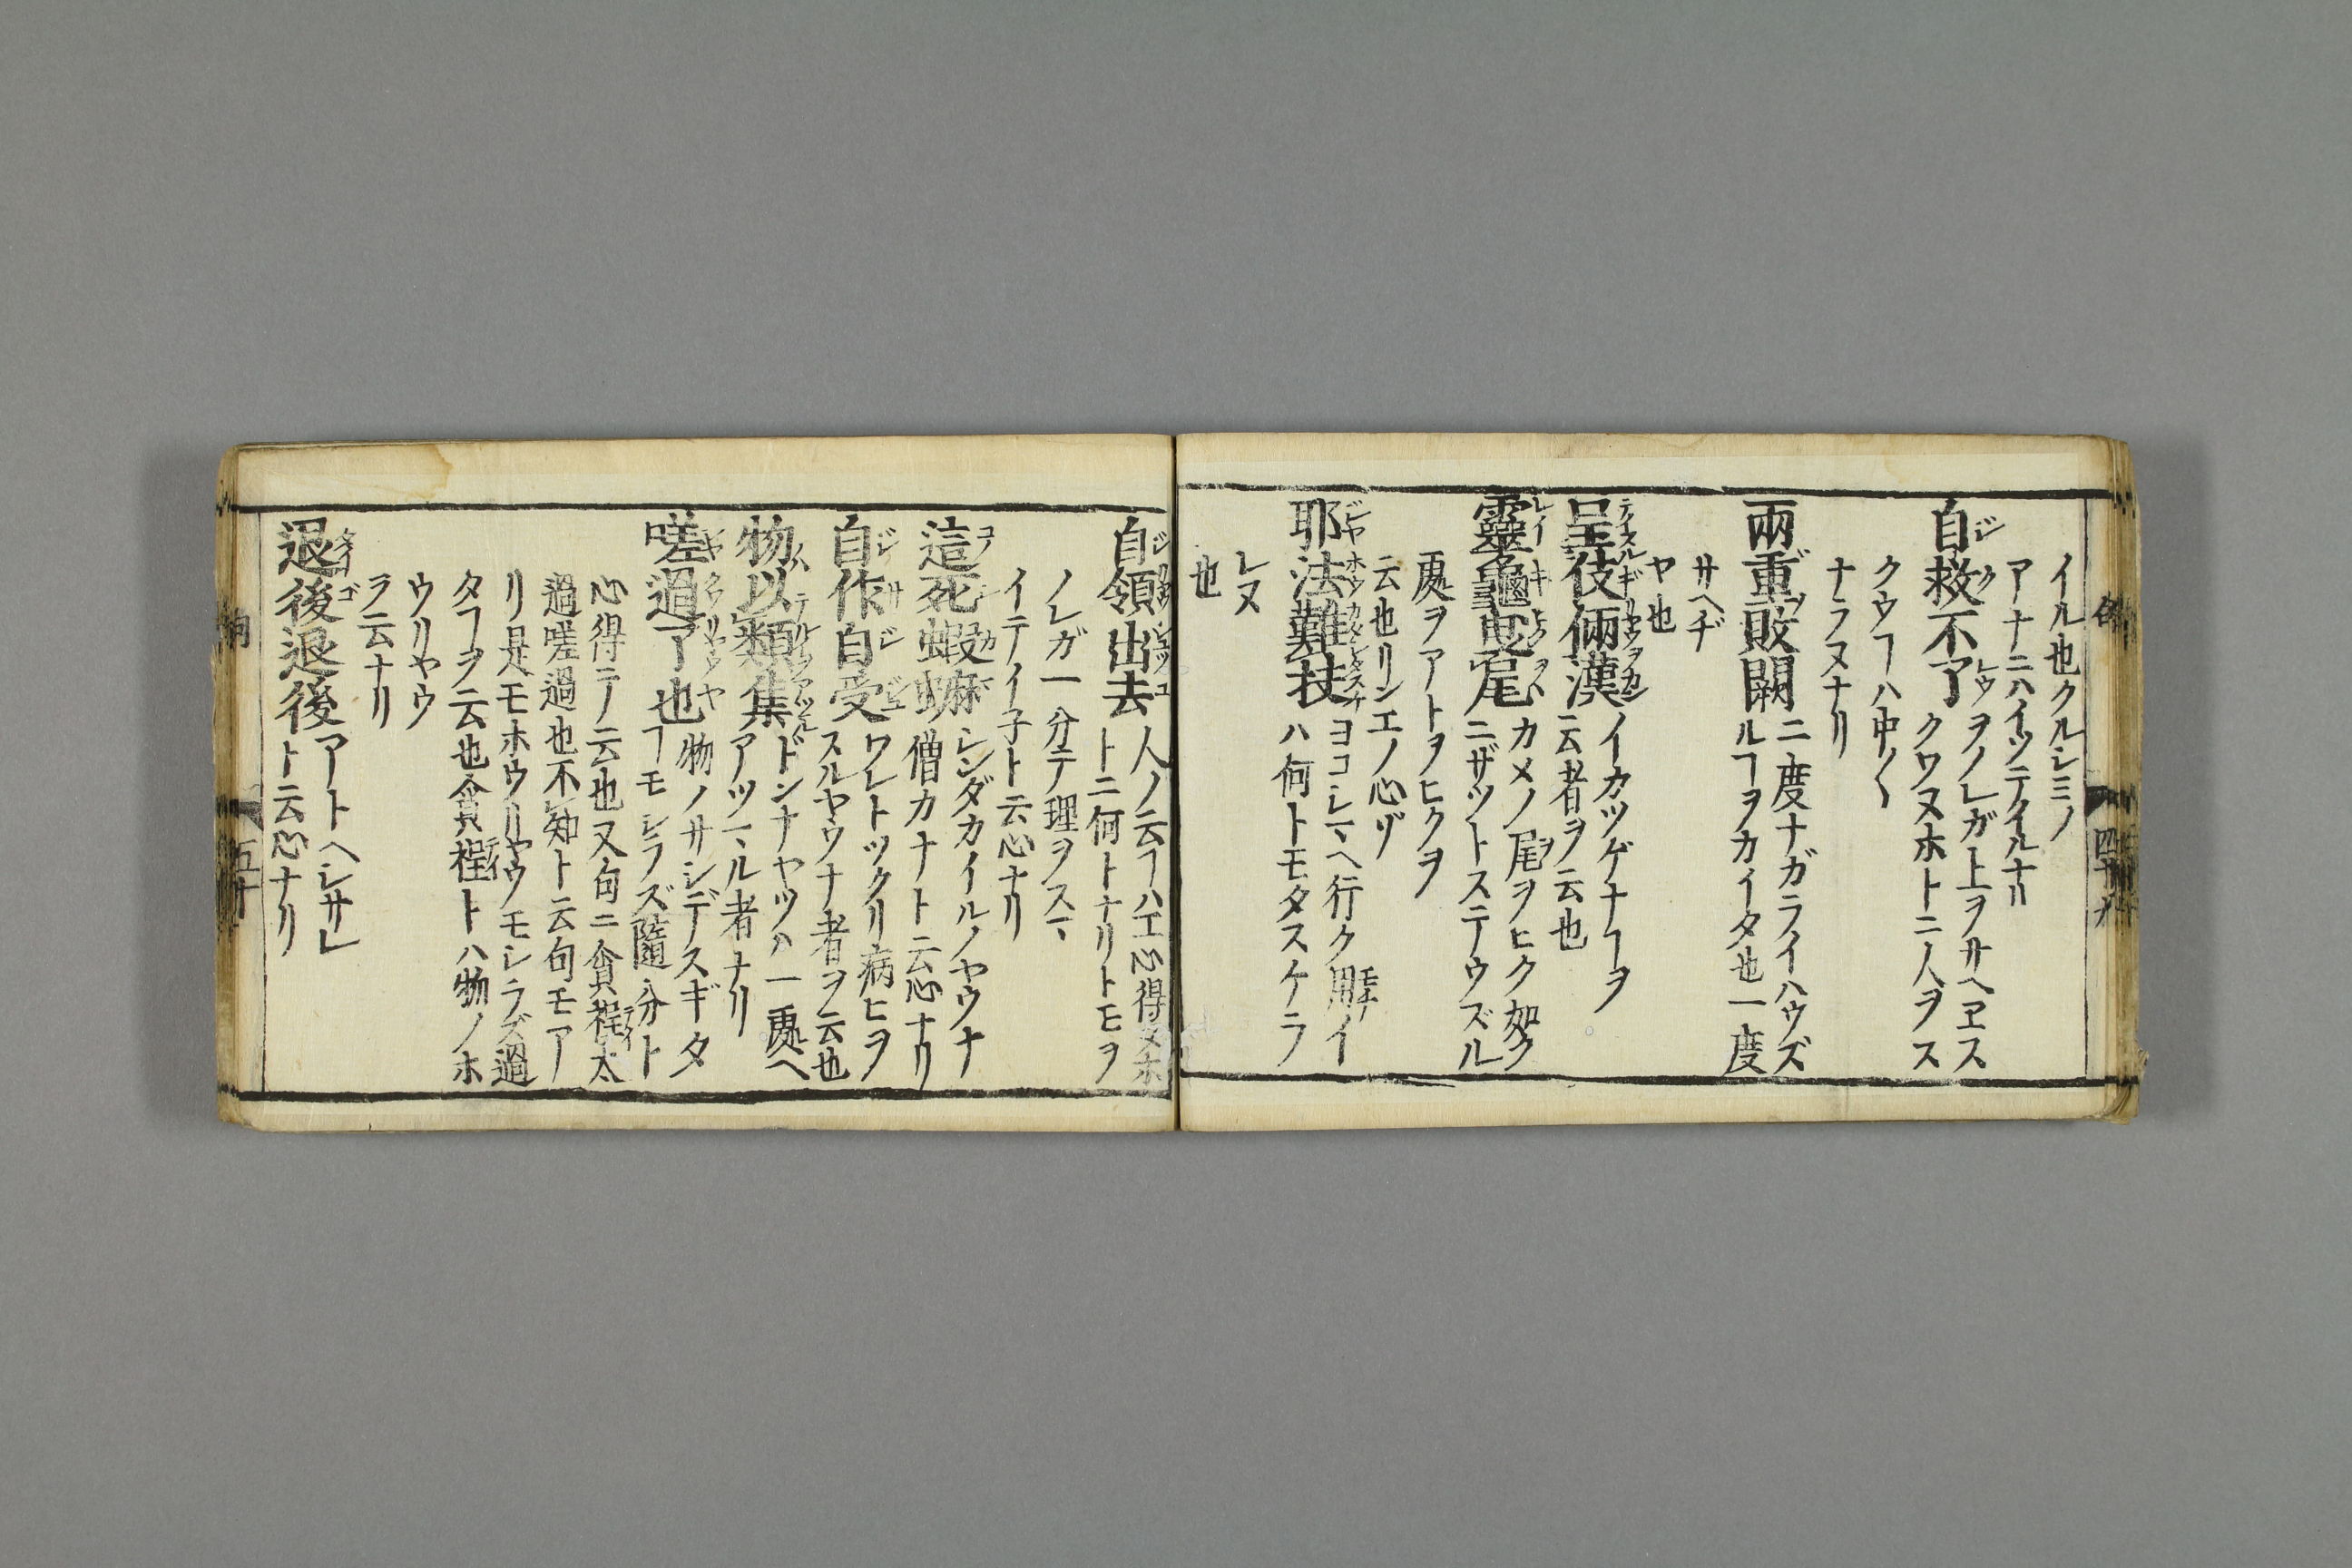 イル也クルシミノ
アナニハイツテイルナリ
自救不了
ヲノレガ上ヲサヘヱス
クワヌホトニ人ヲス
クウヿハ中〱
ナラヌナリ
兩重敗闕
二度ナガライハウズ
ルヿヲカイタ也一度
サヘヂ
ヤ也
呈伎倆漢
イカツゲナヿヲ
云者ヲ云也
靈龜曳尾
カメノ尾ヲヒク如ク
ニザツトステウズル
処ヲアトヲヒクヲ
云也リンエノ心ヅ
耶法難扶
ヨコシマヘ行ク用イ
ハ何トモタスケラ
レヌ
也
四十九
自領出去
人ノ云ヿハエ心得ヌホ
トニ何トナリトモヲ
ノレガ一分テ理ヲスマ
イテイ子ト云心ナリ
這死蝦蟆
シンダカイルノヤウナ
僧カナト云心ナリ
自作自受
ワレトツクリ病ヒヲ
スルヤウナ者ヲ云也
物以類集
ドンナヤツハ一処ヘ
アツマル者ナリ
嗟過了也
物ノサシデスギタ
ヿモシラズ隨分ト
心得テノ云也又句ニ貪程太
過嗟過也不知ト云句モア
リ是モホウリヤウモシラズ過
タヿヲ云也貪程トハ物ノホ
ウリヤウ
ラ云ナリ
退後退後
アトヘシサレ
ト云心ナリ
五十